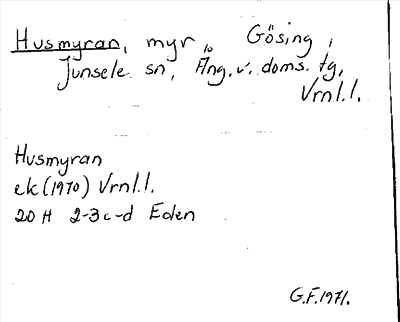 Husmyran, myr, Gösing,
Junsele sn, Ång. v. doms. tg,
Vrnl.l.
Husmyran
ek (1970) Vrnl.l.
20 H 2-3 c-d Eden
G.F. 1971.